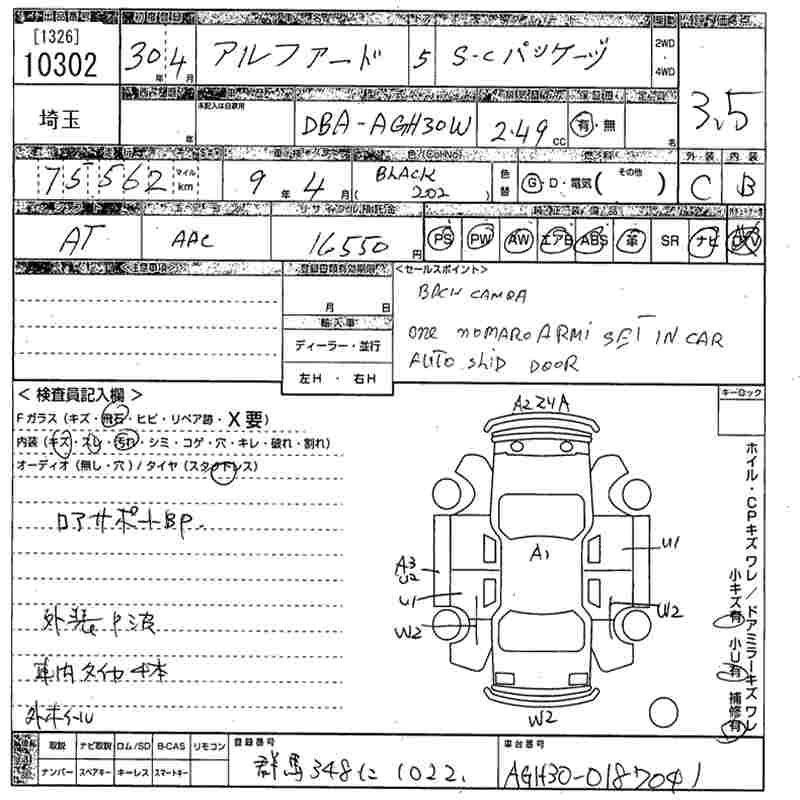 [1326]
10302
30 年 4 月
アルファード
5
S-Cパッケージ
2WD
・
4WD
3.5
埼玉
年
未記入は自家用
DBA-AGH30W
2.49 cc
有・無
名
外・装
内装
75562
マイル
km
9 年 4 月
BLACK
( 202 )
色替
G・D・電気( その他 )
C
B
AT
AAC
リサイクル預託金
16550 円
PS
PW
AW
エアB
ABS
革
SR
ナビ
<注意事項>
登録書類有効期限
月 日
輸入車
ディーラー・並行
左H ・ 右H
<セールスポイント>
BACK CAMRA
one nomARO ARMi SET IN CAR
AUTO SliD DOOR
< 検査員記入欄 >
Fガラス (キズ・飛石・ヒビ・リペア跡・X要)
内装 (キズ・スレ・汚れ・シミ・コゲ・穴・キレ・破れ・割れ)
オーディオ (無し・穴) / タイヤ (スタッドレス)
ロアサポートBP.
車内タイヤ4本
外ホイール
A2 Z4 A
A1
U1
A3
U2
U1
W2
W2
W2
キーロック
ホイル・CPキズワレ/ドアミラーキズワレ
小キズ有 小U有 補修有
取説
ナビ取説
ロム/SD
B-CAS
リモコン
ナンバー
スペアキー
キーレス
スマートキー
登録番号
群馬 348 に 1022.
車台番号
AGH30-0187041